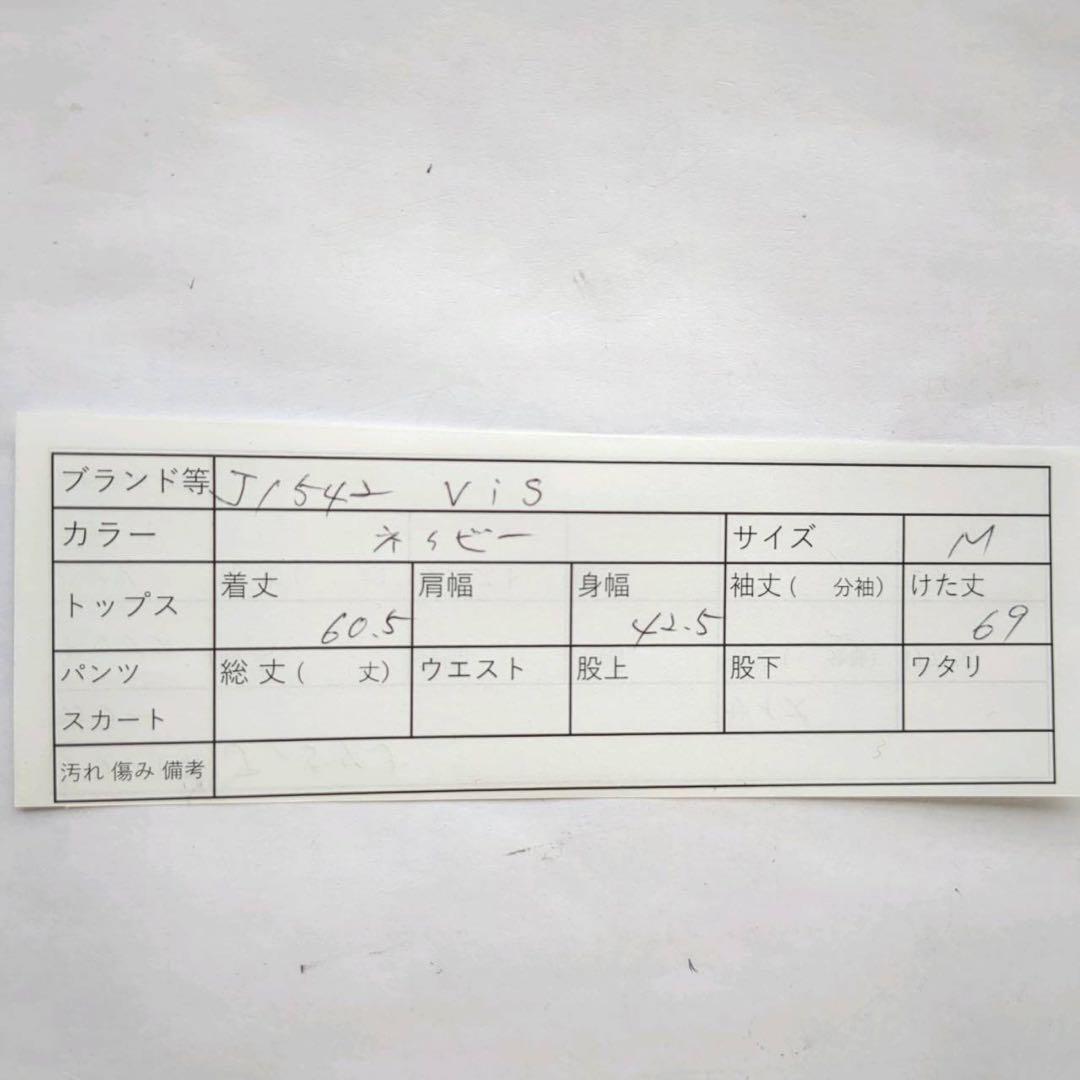 ブランド等 J1542 ViS
カラー ネイビー サイズ M
トップス 着丈 60.5 肩幅 身幅 42.5 袖丈( 分袖) けた丈 69
パンツ 総丈( 丈) ウエスト 股上 股下 ワタリ
スカート
汚れ 傷み 備考